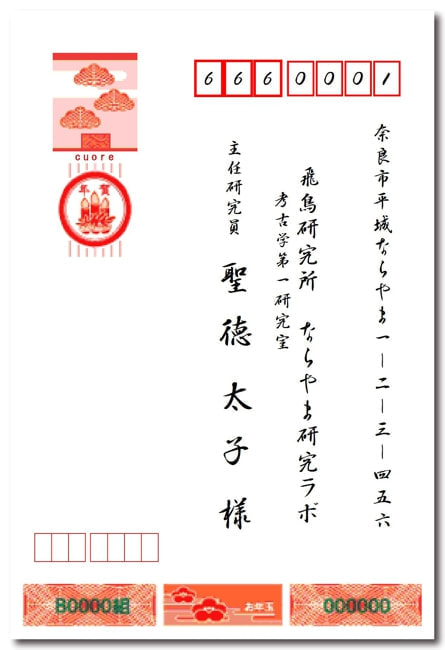 6660001
奈良市平城ならやま一-二-三-四五六
飛鳥研究所 ならやま研究ラボ
考古学第一研究室
主任研究員 聖徳太子様
cuore
年賀
B0000組
お年玉
000000